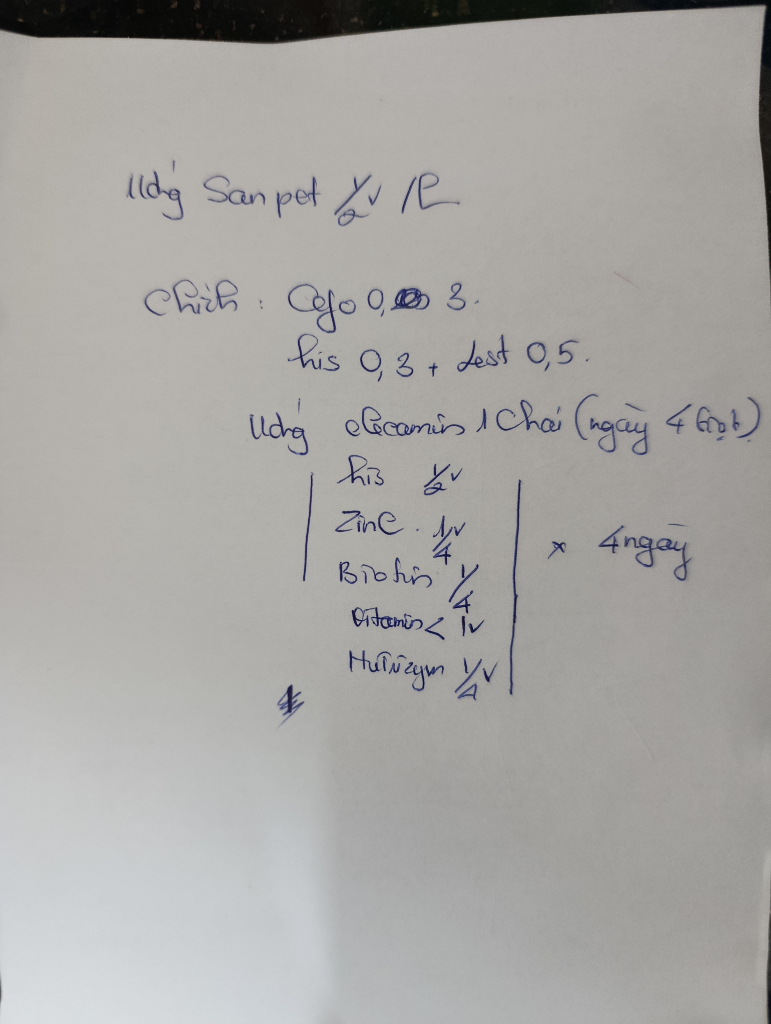 Uống Sanpet 1/2v /L
Chích : Cefo 0, 3.
his 0,3 + dest 0,5.
Uống elecamin 1 Chai (ngày 4 giọt)
his 1/2v
Zinc . 1/4v
Biotin 1/4
Vitamin C 1v
Nutrizym 1/4v
x 4 ngày